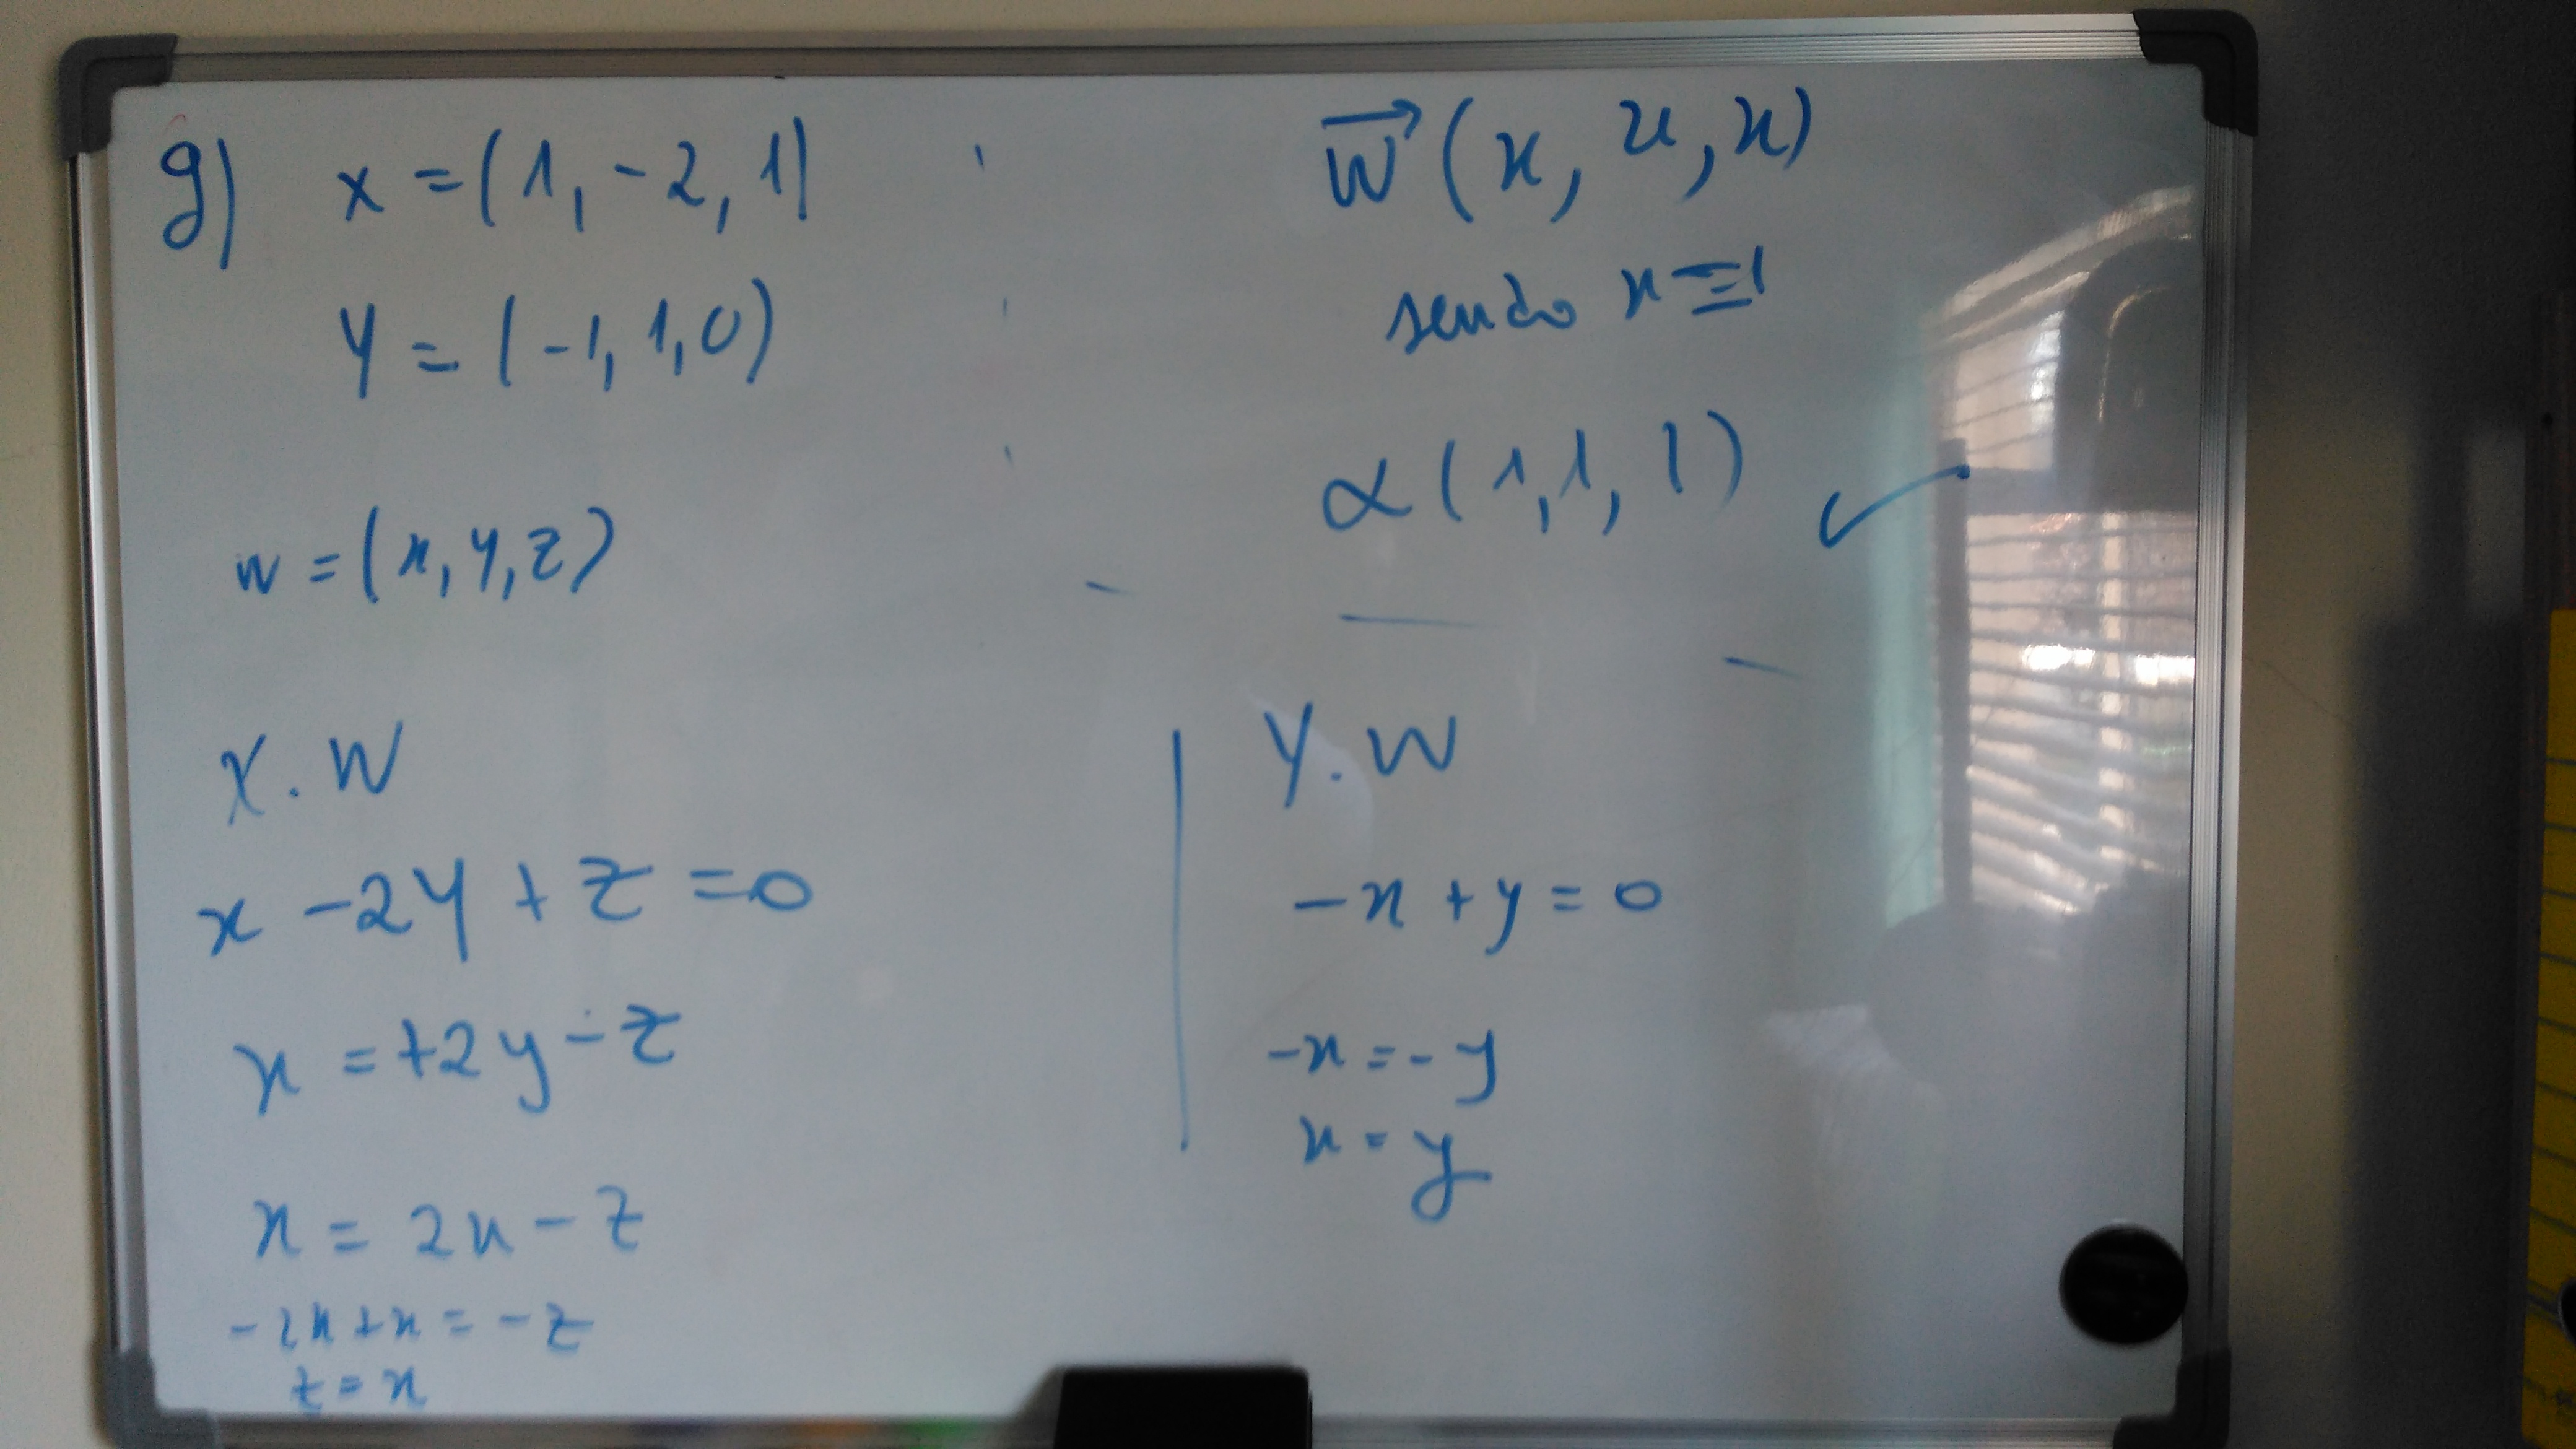 g) x = (1, -2, 1)
y = (-1, 1, 0)
w = (x, y, z)
X . W
x - 2y + z = 0
x = +2y - z
x = 2x - z
-2x + x = -z
z = x
w (x, x, x)
sendo x = 1
α (1, 1, 1) ✓
Y . W
-x + y = 0
-x = -y
x = y